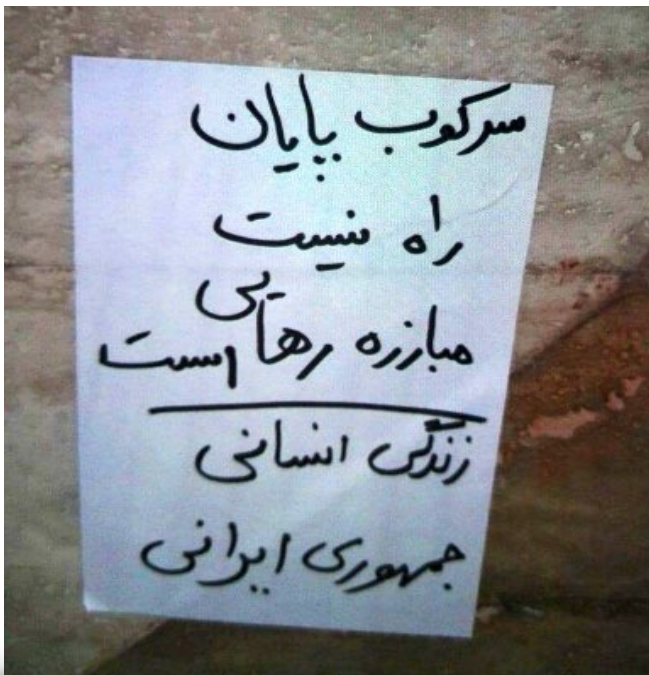 سرکوب پایان
راه نیست
مبارزه رهایی است
زندگی انسانی
جمهوری ایرانی